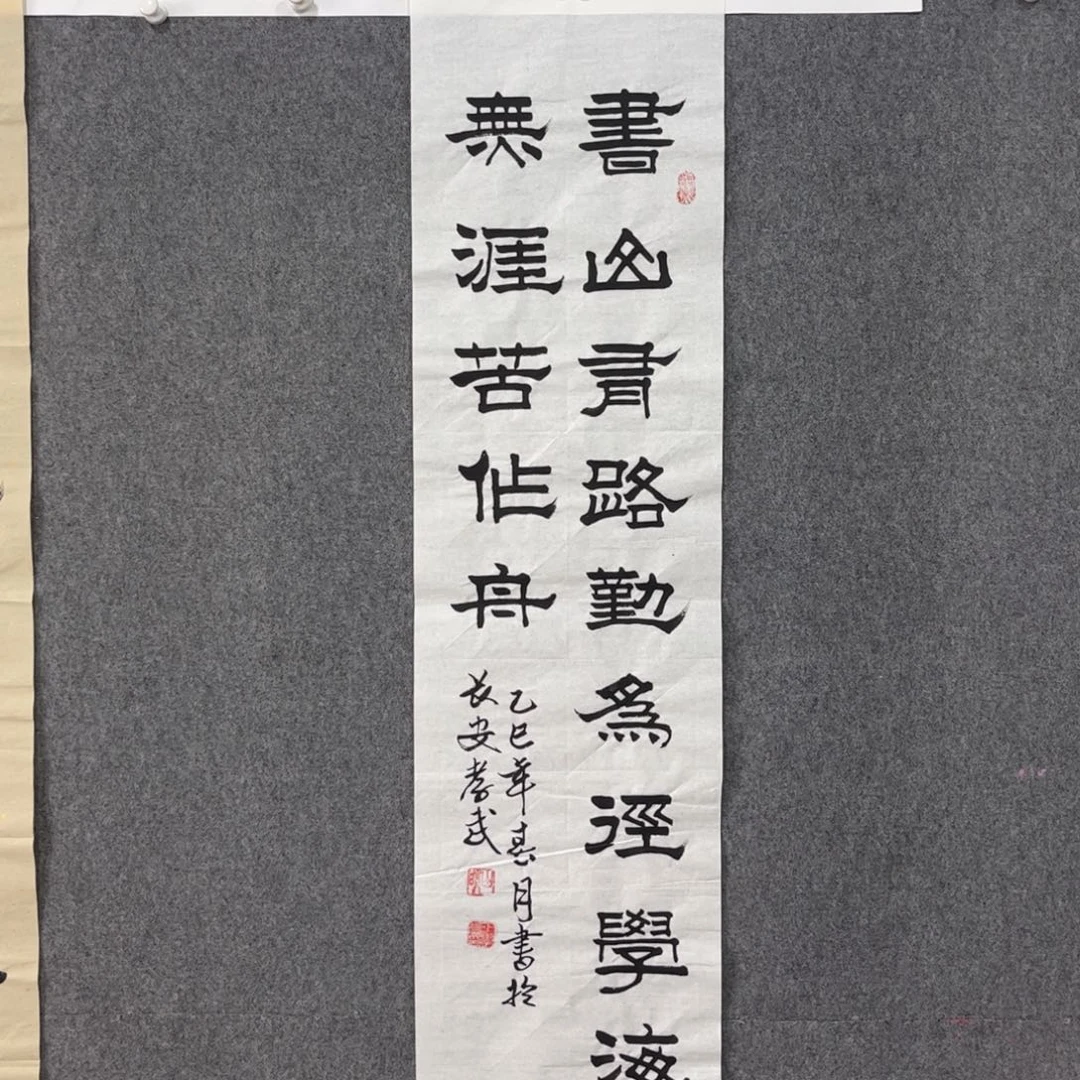 書山有路勤為徑學海
無涯苦作舟
乙巳年春月書於
長安孝武